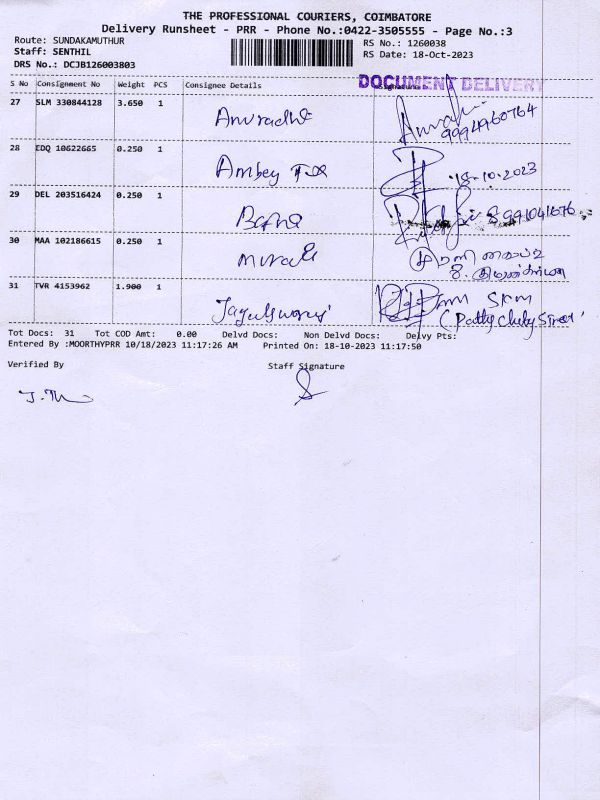 THE PROFESSIONAL COURIERS, COIMBATORE
Delivery Runsheet - PRR - Phone No.:0422-3505555 - Page No.:3
Route: SUNDAKAMUTHUR
RS No.: 1260038
Staff: SENTHIL
RS Date: 18-Oct-2023
DRS No.: DCJB126003803
DOCUMENT DELIVERY
S No Consignment No Weight PCS Consignee Details Signature
27 SLM 330844128 3.650 1 Anuradha
28 EDQ 10622665 0.250 1 Ambey Tex 18-10.2023
29 DEL 203516424 0.250 1
30 MAA 102186615 0.250 1 Murali
31 TVR 4153962 1.900 1 SRM
Tot Docs: 31 Tot COD Amt: 0.00 Delvd Docs: Non Delvd Docs: Delvy Pts:
Entered By :MOORTHYPRR 10/18/2023 11:17:26 AM Printed On: 18-10-2023 11:17:50
Verified By Staff Signature